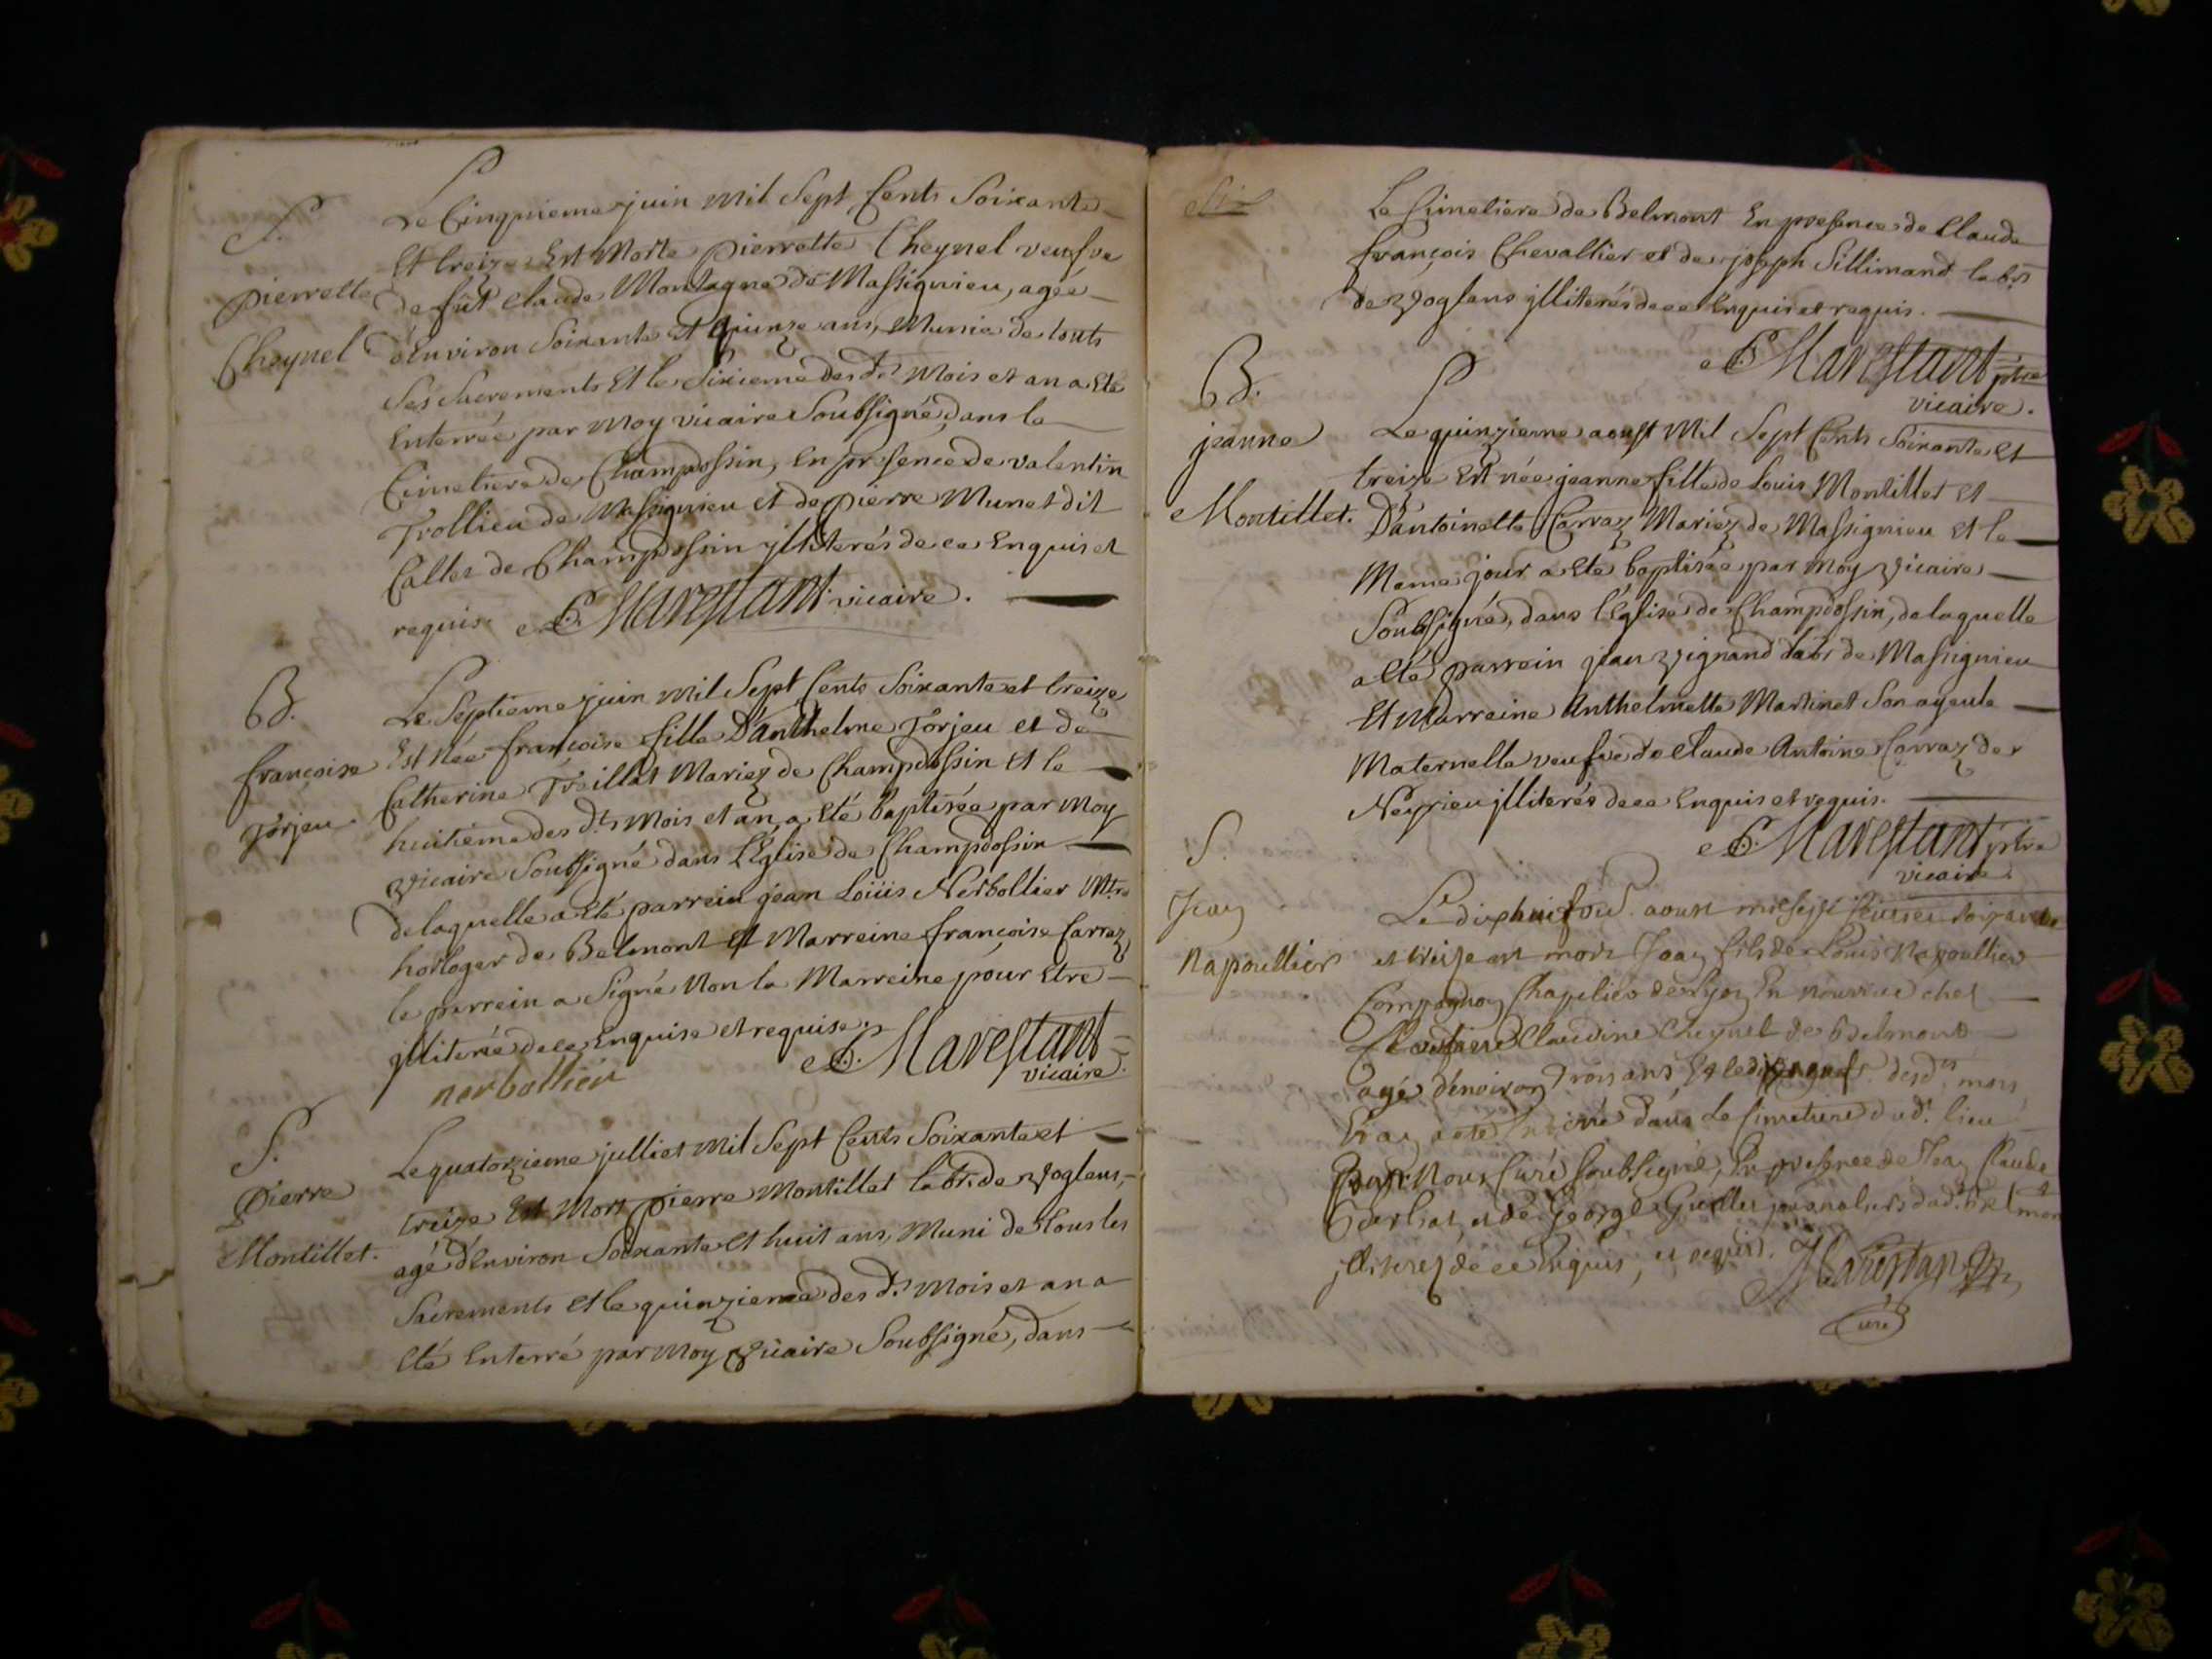 S.
Pierrette
Cheynel
Le Cinquieme juin mil Sept Cents Soixante
Et treize Est Morte pierrette Cheynel veufve
de fût Claude Montagne de Massignieu, agée
d'Environ Soixante Et quinze ans, Munie de touts
Ses Sacrements Et le Sixieme des dts Mois et an a Eté
Enterrée par moy vicaire Soubsigné, dans le
Cimetiere de Champdossin, En presence de valentin
Trollieu de Massignieu et de pierre Munet dit
Callet de Champdossin jlliterés de ce Enquis et
requis. C. Marestant vicaire.
B.
françoise
Torjeu
Le Septieme juin mil Sept Cents Soixante et treize
Est Née françoise fille D'anthelme Torjeu et de
Catherine Treillet Mariez de Champdossin Et le
huitieme des dts Mois et an a Eté baptisée par Moy
Vicaire Soubsigné dans L'Eglise de Champdossin
de laquelle a Eté parrein jean Loüis Nerbollier Mtre
horloger de Belmont et Marreine françoise Carraz
le parrein a Signé Non la Marreine pour Etre
jlliterée de ce Enquise et requise. C. Marestant
vicaire.
nerbollier
S.
Pierre
Montillet.
Le quatorzieme julliet Mil Sept Cents Soixante et
treize Est Mort pierre Montillet labr. de Voglens,
agé d'Environ Soixante et huit ans, Muni de tous les
Sacrements et le quinzieme des dts Mois et an a
Eté Enterré par Moy Vicaire Soubsigné, dans
Six
Le Cimetiere de Belmont En presence de Claude
françois Chevallier et de joseph Sillimand labrs
de Voglans jlliterés de ce Enquis et requis.
C. Marestant ptre
vicaire.
B.
jeanne
Montillet.
Le quinzieme aoust Mil Sept Cents Soixante Et
treize Est née jeanne fille de Louis Montillet et
D'antoinette Carraz Mariez de Massignieu Et le
Meme jour a Eté baptisée par Moy Vicaire
Soubsigné, dans l'Eglise de Champdossin, de laquelle
a Eté parrein jean Vignand labr de Massignieu
Et Marreine Anthelmette Martinet Son ayeule
Maternelle veufve de Claude Antoine Carraz de
Neyrieu jlliterés de ce Enquis et requis.
C. Marestant ptre
vicaire
S.
Jean
Napoullier
Le dixhuit aoust mil sept Cents soixante
et treize est mort Jean fils de Louis Napoullier
Compagnon Chapelier de Lyon En nourrice chez
Claudine Cheynel de Belmont
agé d'environ trois ans Et le dixneuf desdts mois
Et an a eté Enterré dans Le Cimetiere dudt lieu
Par Nous Curé soubsigné, En presence de Jean Claude
et de George journaliers dudt Belmont
jlliterez de ce Enquis, et requis. Marestan
Curé